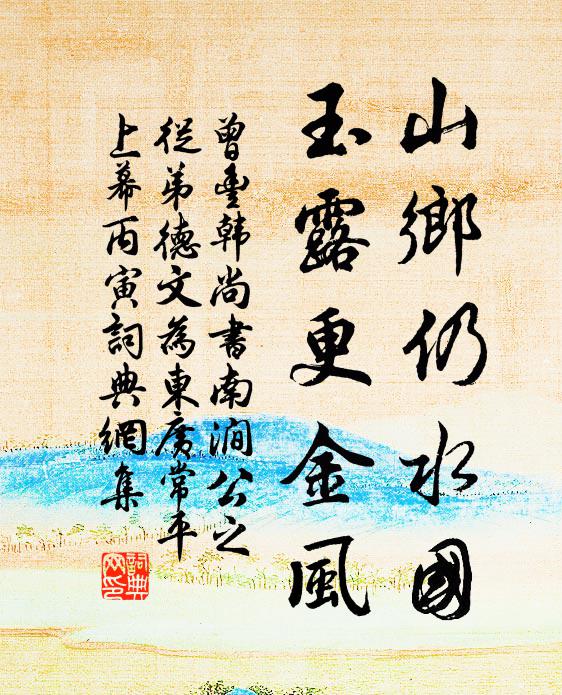 山鄉仍水國
玉露更金風
曾豐韓尚書南澗公之
從弟德文為東廣常平
上幕丙寅詞典網集
詞典
网印